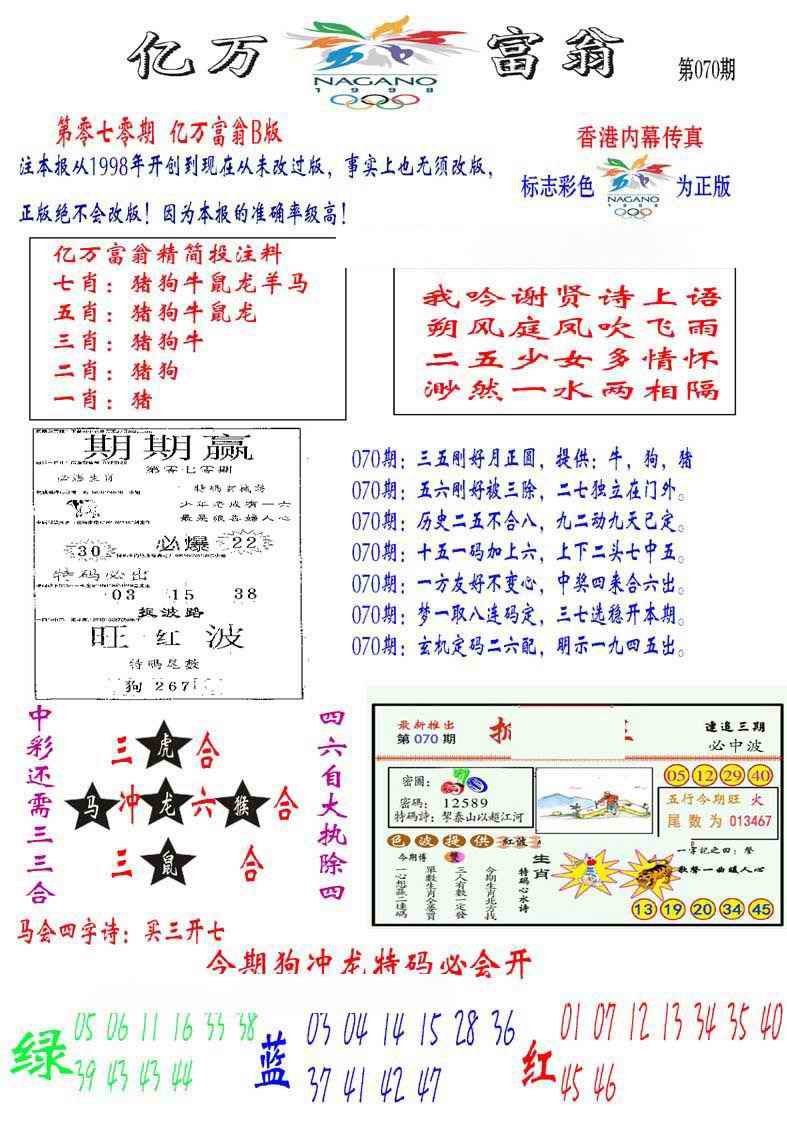 亿万富翁
NAGANO
1998
第070期
第零七零期 亿万富翁B版
注本报从1998年开创到现在从未改过版，事实上也无须改版，
正版绝不会改版！因为本报的准确率级高！
香港内幕传真
标志彩色
NAGANO
1998
为正版
亿万富翁精简投注料
七肖：猪狗牛鼠龙羊马
五肖：猪狗牛鼠龙
三肖：猪狗牛
二肖：猪狗
一肖：猪
我吟谢贤诗上语
朔风庭凤吹飞雨
二五少女多情怀
渺然一水两相隔
期期赢
第零七零期
少年老成有一六
最黑狠毒妇人心
30 必爆 22
特码必出
03 15 38
捉波路
旺红波
特码尾数
狗 267
070期：三五刚好月正圆，提供：牛，狗，猪
070期：五六刚好被三除，二七独立在门外。
070期：历史二五不合八，九二动九天已定。
070期：十五一码加上六，上下二头七中五。
070期：一方友好不变心，中奖四来合六出。
070期：梦一取八连码定，三七选稳开本期。
070期：玄机定码二六配，明示一九四五出。
中彩还需三三合
三虎合
马冲龙六猴合
三鼠合
四六自大执除四
最新推出
第070期
连追三期
必中波
密圖：
密碼：12589
特碼詩：挈泰山以超江河
05 12 29 40
五行今期旺 火
尾数为 013467
色波提供 红波
今期博
一心想贏二連碼
單數生肖全委買
三人有數一定發
今期生肖北方找
特码心水诗
生肖
一字記之曰：聲
歌聲一曲暖人心
13 19 20 34 45
马会四字诗：买三开七
今期狗冲龙特码必会开
绿
05 06 11 16 33 38
39 43 43 44
蓝
03 04 14 15 28 36
37 41 42 47
红
01 07 12 13 34 35 40
45 46